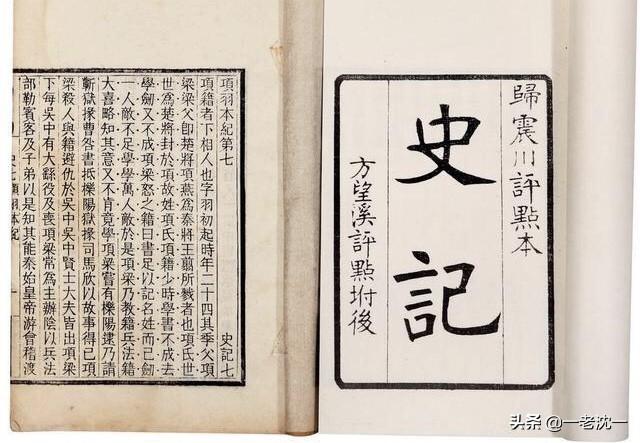 歸震川評點本
史記
方望溪評點坿後
項羽本紀第七 史記七
項籍者下相人也字羽初起時年二十四其季父項
梁梁父即楚將項燕為秦將王翦所戮者也項氏世
世為楚將封於項故姓項氏項籍少時學書不成去
學劍又不成項梁怒之籍曰書足以記名姓而已劍
一人敵不足學學萬人敵於是項梁乃教籍兵法籍
大喜略知其意又不肯竟學項梁嘗有櫟陽逮乃請
蘄獄掾曹咎書抵櫟陽獄掾司馬欣以故事得已項
梁殺人與籍避仇於吳中吳中賢士大夫皆出項梁
下每吳中有大繇役及喪項梁常為主辦陰以兵法
部勒賓客及子弟以是知其能秦始皇帝游會稽渡
头条 @一老沈一